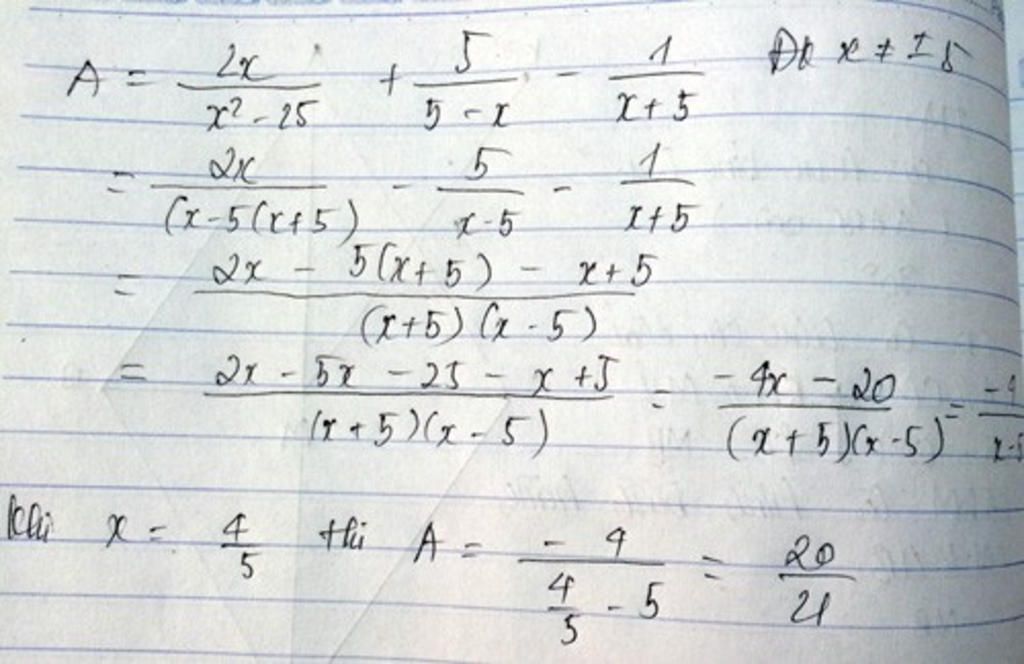 A = 2x/(x² - 25) + 5/(5 - x) - 1/(x + 5) ĐK x ≠ ± 5
= 2x/(x - 5(x + 5) - 5/(x - 5) - 1/(x + 5)
= (2x - 5(x + 5) - x + 5)/((x + 5)(x - 5))
= (2x - 5x - 25 - x + 5)/((x + 5)(x - 5)) = (-4x - 20)/((x + 5)(x - 5)) = -4/(x - 5
Khi x = 4/5 thì A = -4/(4/5 - 5) = 20/21